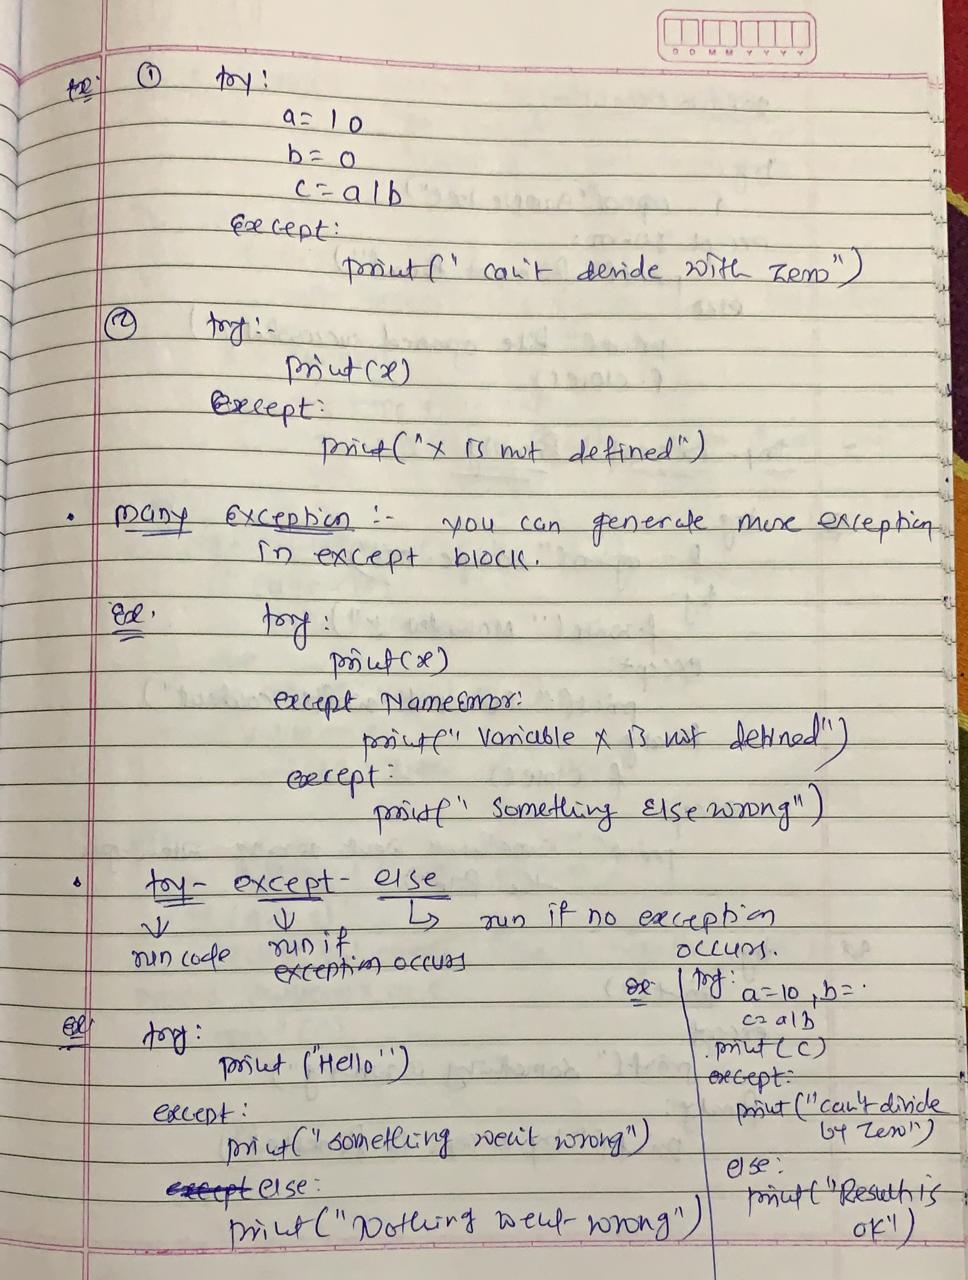 D D M M Y Y Y Y
Ex: ① try:
a= 10
b= 0
c= a/b
Except:
print(" can't devide with zero")
② try:-
print(x)
Except:
print("x is not defined")
• Many Exception :- you can generate more exception
in except block.
Ex. try:
print(x)
except NameError:
print(" variable x is not defined")
except:
print(" something Else wrong")
• try- except- else
run code
run if
exception occurs
run if no exception
occurs.
Ex: try:
print ("Hello")
except:
print("something went wrong")
else:
print("Nothing went wrong")
Ex try:
a=10, b=
c= a/b
print(c)
except:
print("can't divide
by zero")
else:
print("Result is
ok")